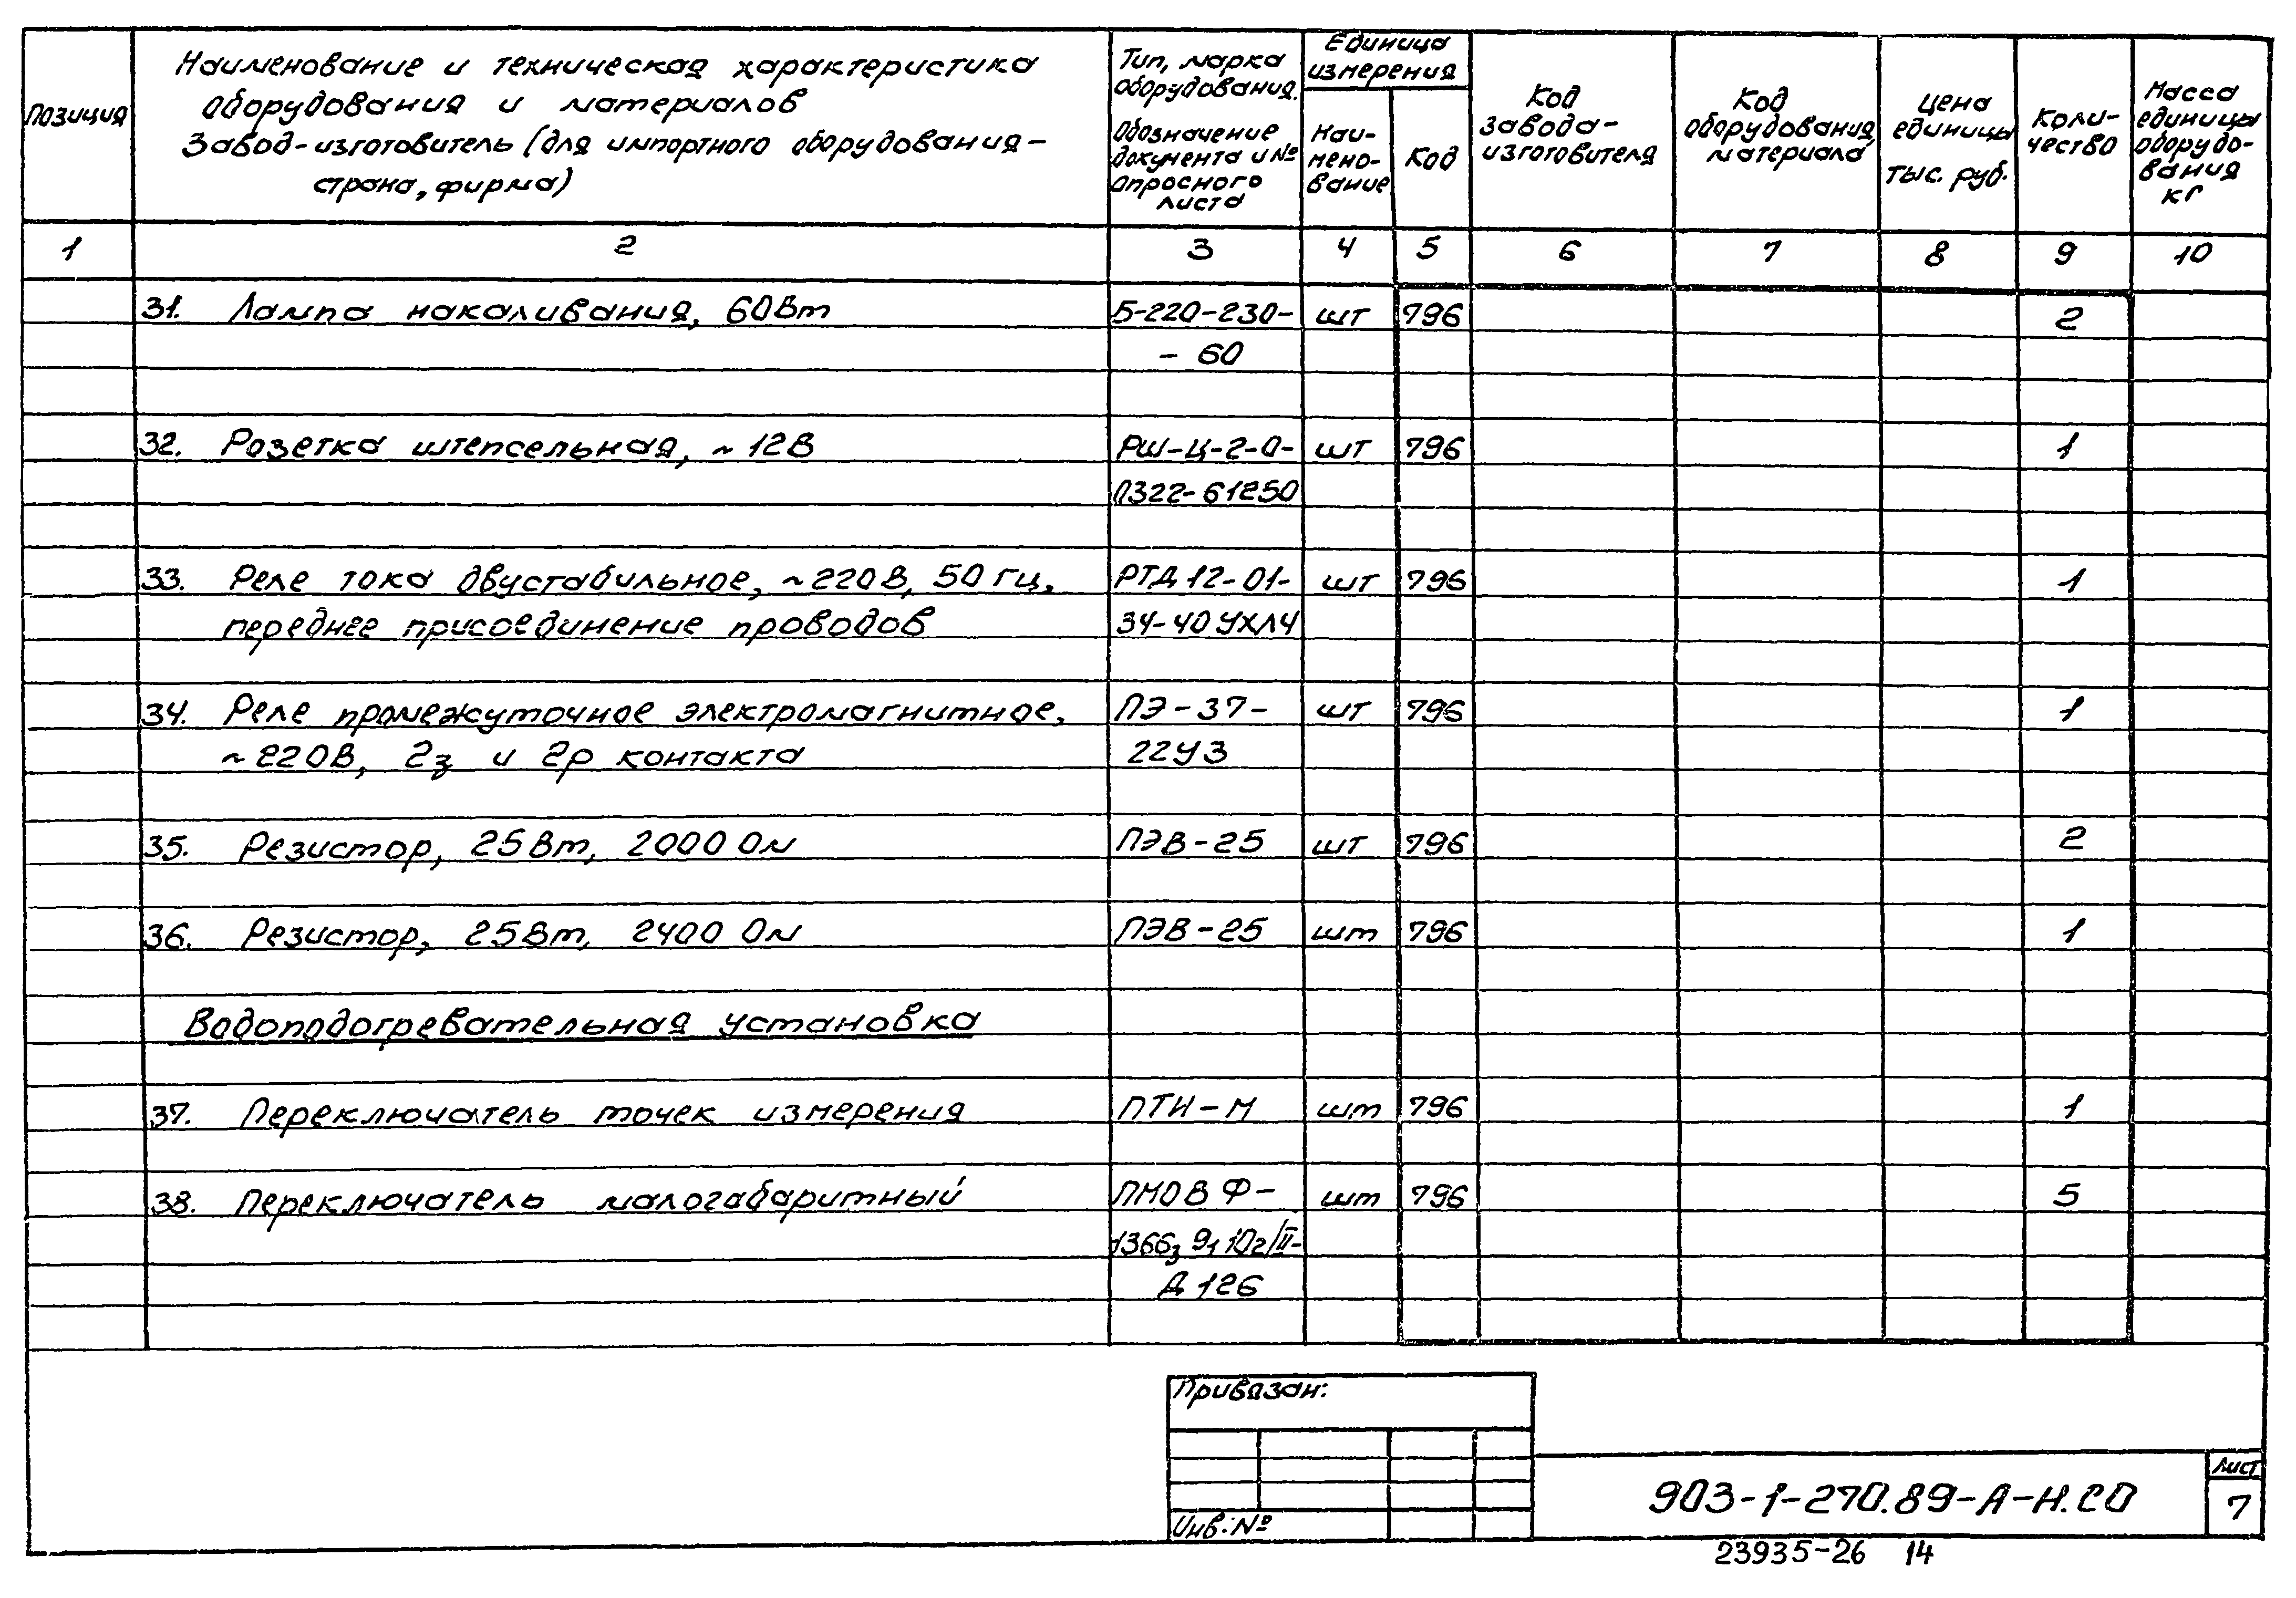 Позиция
Наименование и техническая характеристика
оборудования и материалов
Завод-изготовитель (для импортного оборудования-
страна, фирма)
Тип, марка
оборудования.
Обозначение
документа и №
опросного
листа
Единица
измерения
Наи-
мено-
вание
Код
Код
завода-
изготовителя
Код
оборудования,
материала
Цена
единицы
тыс. руб.
Коли-
чество
Масса
единицы
оборудо-
вания
кг
1 2 3 4 5 6 7 8 9 10
31. Лампа накаливания, 60Вт Б-220-230- шт 796 2
- 60
32. Розетка штепсельная, ~12В РШ-Ц-2-0- шт 796 1
П322-61250
33. Реле тока двустабильное, ~220В, 50 Гц, РТД 12-01- шт 796 1
переднее присоединение проводов 34-40 УХЛ4
34. Реле промежуточное электромагнитное, ПЭ-37- шт 796 1
~220В, 2з и 2р контакта 22У3
35. Резистор, 25Вт, 2000 Ом ПЭВ-25 шт 796 2
36. Резистор, 25Вт, 2400 Ом ПЭВ-25 шт 796 1
Водоподогревательная установка
37. Переключатель точек измерения ПТИ-М шт 796 1
38. Переключатель малогабаритный ПМОВФ- шт 796 5
1366з 9₁ 10₂/II-
Д 126
Привязан:
Инв.№
903-1-270.89-А-Н.СО
Лист
7
23935-26 14